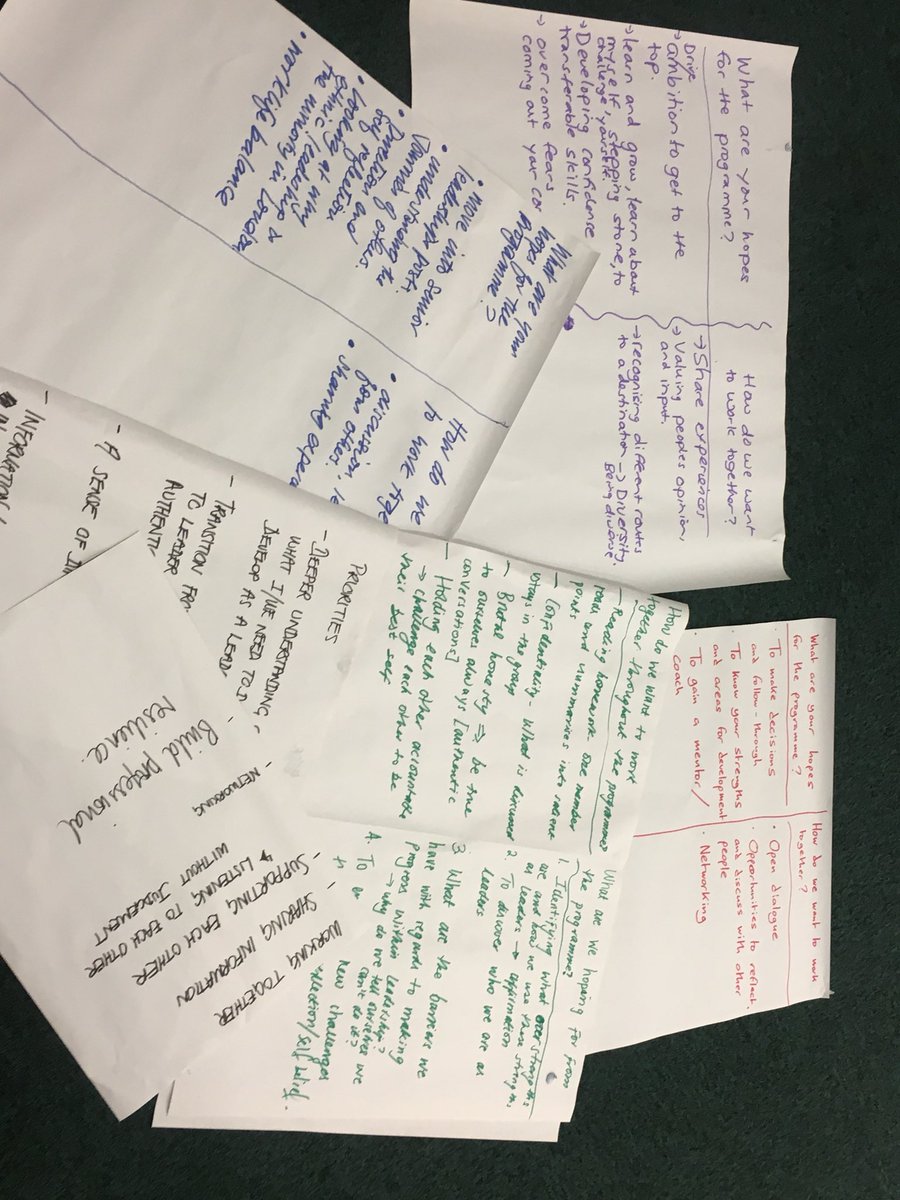 What are your hopes
for the programme?
Drive
→ ambition to get to the
top.
→ learn and grow, learn about
myself, stepping stone, to
challenge yourself.
→ Developing confidence
transferable skills.
→ overcome fears
coming out your
How do we want
to work together?
→ Share experiences
→ Valuing peoples opinion,
and input.
→ recognising different routes
to a destination → Diversity.
Being diverse
What are your
hopes for the
programme?
• move into senior
leadership post.
• understanding the
of others.
• Direction and
reflection
• Looking at why
ethnic leadership is
the minority in London
• work life balance
How do we
to work
• discussion,
from others.
• sharing
What are your hopes
for the programme?
• To make decisions
and follow-through
• To know your strengths
and areas for development
• To gain a mentor/
coach
How do we want to work
together?
• Open dialogue
• Opportunities to reflect
and discuss with other
people
• Networking
How do we want to work
together throughout the programme?
- Reading homework one member
reads and summarises into salient
points
- Confidentiality - What is discussed
stays in the group
- Brutal honesty ⇒ be true
to ourselves always [authentic
conversations]
- Holding each other accountable
→ challenge each other to be
their best self
What are we hoping for from
the programme?
1. Identifying what our strengths
are and how we use those strengths
as leaders → affirmation
2. To discover who we are as
leaders
3. What are the barriers we
have with regards to making
progress within leadership?
→ why do we tell ourselves we
can't do it?
4. To
+
new challenges
/self belief.
PRIORITIES
- DEEPER UNDERSTANDING
WHAT I/WE NEED TO
DEVELOP AS A LEAD
- TRANSITION
TO LEADER
- A SENSE OF
- INFORMATION
WORKING TOGETHER
- SHARING INFORMATION
- SUPPORTING EACH OTHER
↳ LISTENING TO EACH OTHER
WITHOUT JUDGEMENT
- NETWORKING
- Build professional
resilience.